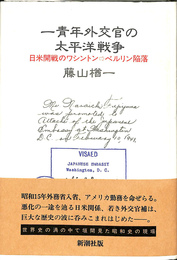 一青年外交官の
太平洋戦争
日米開戦のワシントン→ベルリン陥落
藤山楢一
Mr. Naraichi Fujiyama
was promoted to
Attaché of the Japanese
Embassy at Washington
D.C. on February
VISAED
JAPANESE EMBASSY
Washington, D. C.
昭和15年外務省入省、アメリカ勤務を命ぜらる。
悪化の一途を辿る日米関係、若き外交官補は、
巨大な歴史の波に呑みこまれはじめた――。
世界史の渦の中で垣間見た昭和史の現場
新潮社版